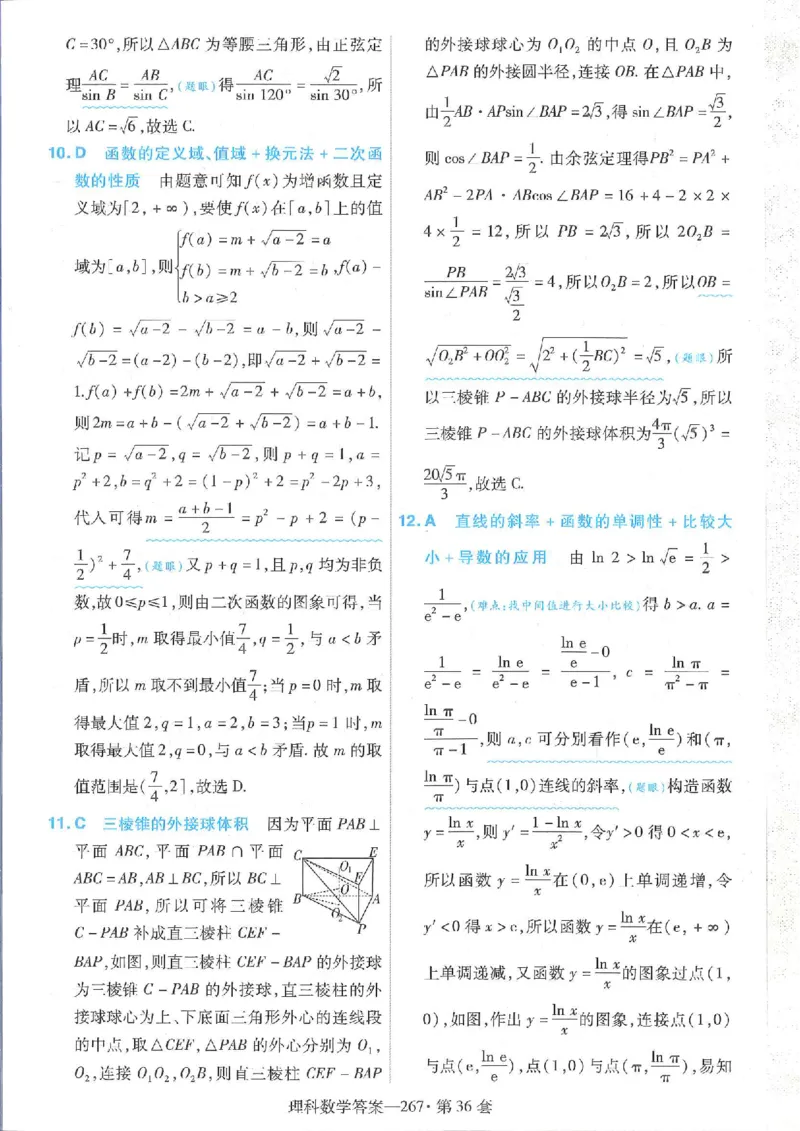 C=30°,所以△ABC 为等腰三角形,由正弦定
理AC/sin B=AB/sin C,(题眼)得AC/sin 120°=√2/sin 30°,所
以 AC=√6,故选 C.
10. D 函数的定义域、值域+换元法+二次函
数的性质 由题意可知 f(x)为增函数且定
义域为[2,+∞),要使f(x)在[a,b]上的值
域为[a,b],则{f(a)=m+√(a-2)=a
f(b)=m+√(b-2)=b,f(a)-
b>a≥2
f(b)=√(a-2)-√(b-2)=a-b,则√(a-2)-
√(b-2)=(a-2)-(b-2),即√(a-2)+√(b-2)=
1.f(a)+f(b)=2m+√(a-2)+√(b-2)=a+b,
则2m=a+b-(√(a-2)+√(b-2))=a+b-1.
记p=√(a-2),q=√(b-2),则p+q=1,a=
p²+2,b=q²+2=(1-p)²+2=p²-2p+3,
代入可得m=(a+b-1)/2=p²-p+2=(p-
1/2)²+7/4,(题眼)又p+q=1,且p,q 均为非负
数,故0≤p≤1,则由二次函数的图象可得,当
p=1/2时,m 取得最小值7/4,q=1/2,与 a<b 矛
盾,所以 m 取不到最小值7/4;当p=0 时,m 取
得最大值2,q=1,a=2,b=3;当p=1 时,m
取得最大值2,q=0,与a<b 矛盾.故 m 的取
值范围是(7/4,2],故选 D.
11. C 三棱锥的外接球体积 因为平面 PAB⊥
平面 ABC,平面 PAB∩平面
ABC=AB,AB⊥BC,所以 BC⊥
平面 PAB,所以可将三棱锥
C-PAB 补成直三棱柱 CEF-
C E
O₁
F
O
B A
O₂
P
BAP,如图,则直三棱柱 CEF-BAP 的外接球
为三棱锥 C-PAB 的外接球,直三棱柱的外
接球球心为上、下底面三角形外心的连线段
的中点,取△CEF,△PAB 的外心分别为 O₁,
O₂,连接 O₁O₂,O₂B,则直三棱柱 CEF-BAP
的外接球球心为 O₁O₂ 的中点 O,且 O₂B 为
△PAB 的外接圆半径,连接 OB. 在△PAB 中,
由1/2AB·APsin∠BAP=2√3,得 sin∠BAP=√3/2,
则 cos∠BAP=1/2. 由余弦定理得PB²=PA²+
AB²-2PA·ABcos∠BAP=16+4-2×2×
4×1/2=12,所以 PB=2√3,所以 2O₂B=
PB/sin∠PAB=2√3/(√3/2)=4,所以O₂B=2,所以OB=
√(O₂B²+OO₂²)=√(2²+(1/2BC)²)=√5,(题眼)所
以三棱锥 P-ABC 的外接球半径为√5,所以
三棱锥 P-ABC 的外接球体积为4π/3(√5)³=
20√5π/3,故选 C.
12. A 直线的斜率+函数的单调性+比较大
小+导数的应用 由 ln 2>ln√e=1/2>
1/(e²-e),(难点:找中间值进行大小比较)得 b>a. a=
1/(e²-e)=ln e/(e²-e)=(ln e/e-0)/(e-1),c=ln π/(π²-π)=
(ln π/π-0)/(π-1),则 a,c 可分别看作(e,ln e/e)和(π,
ln π/π)与点(1,0)连线的斜率,(题眼)构造函数
y=ln x/x,则y′=(1-ln x)/x²,令y′>0 得0<x<e,
所以函数 y=ln x/x在(0,e)上单调递增,令
y′<0 得x>e,所以函数y=ln x/x在(e,+∞)
上单调递减,又函数 y=ln x/x的图象过点(1,
0),如图,作出 y=ln x/x的图象,连接点(1,0)
与点(e,ln e/e),点(1,0)与点(π,ln π/π),易知
理科数学答案—267·第 36 套